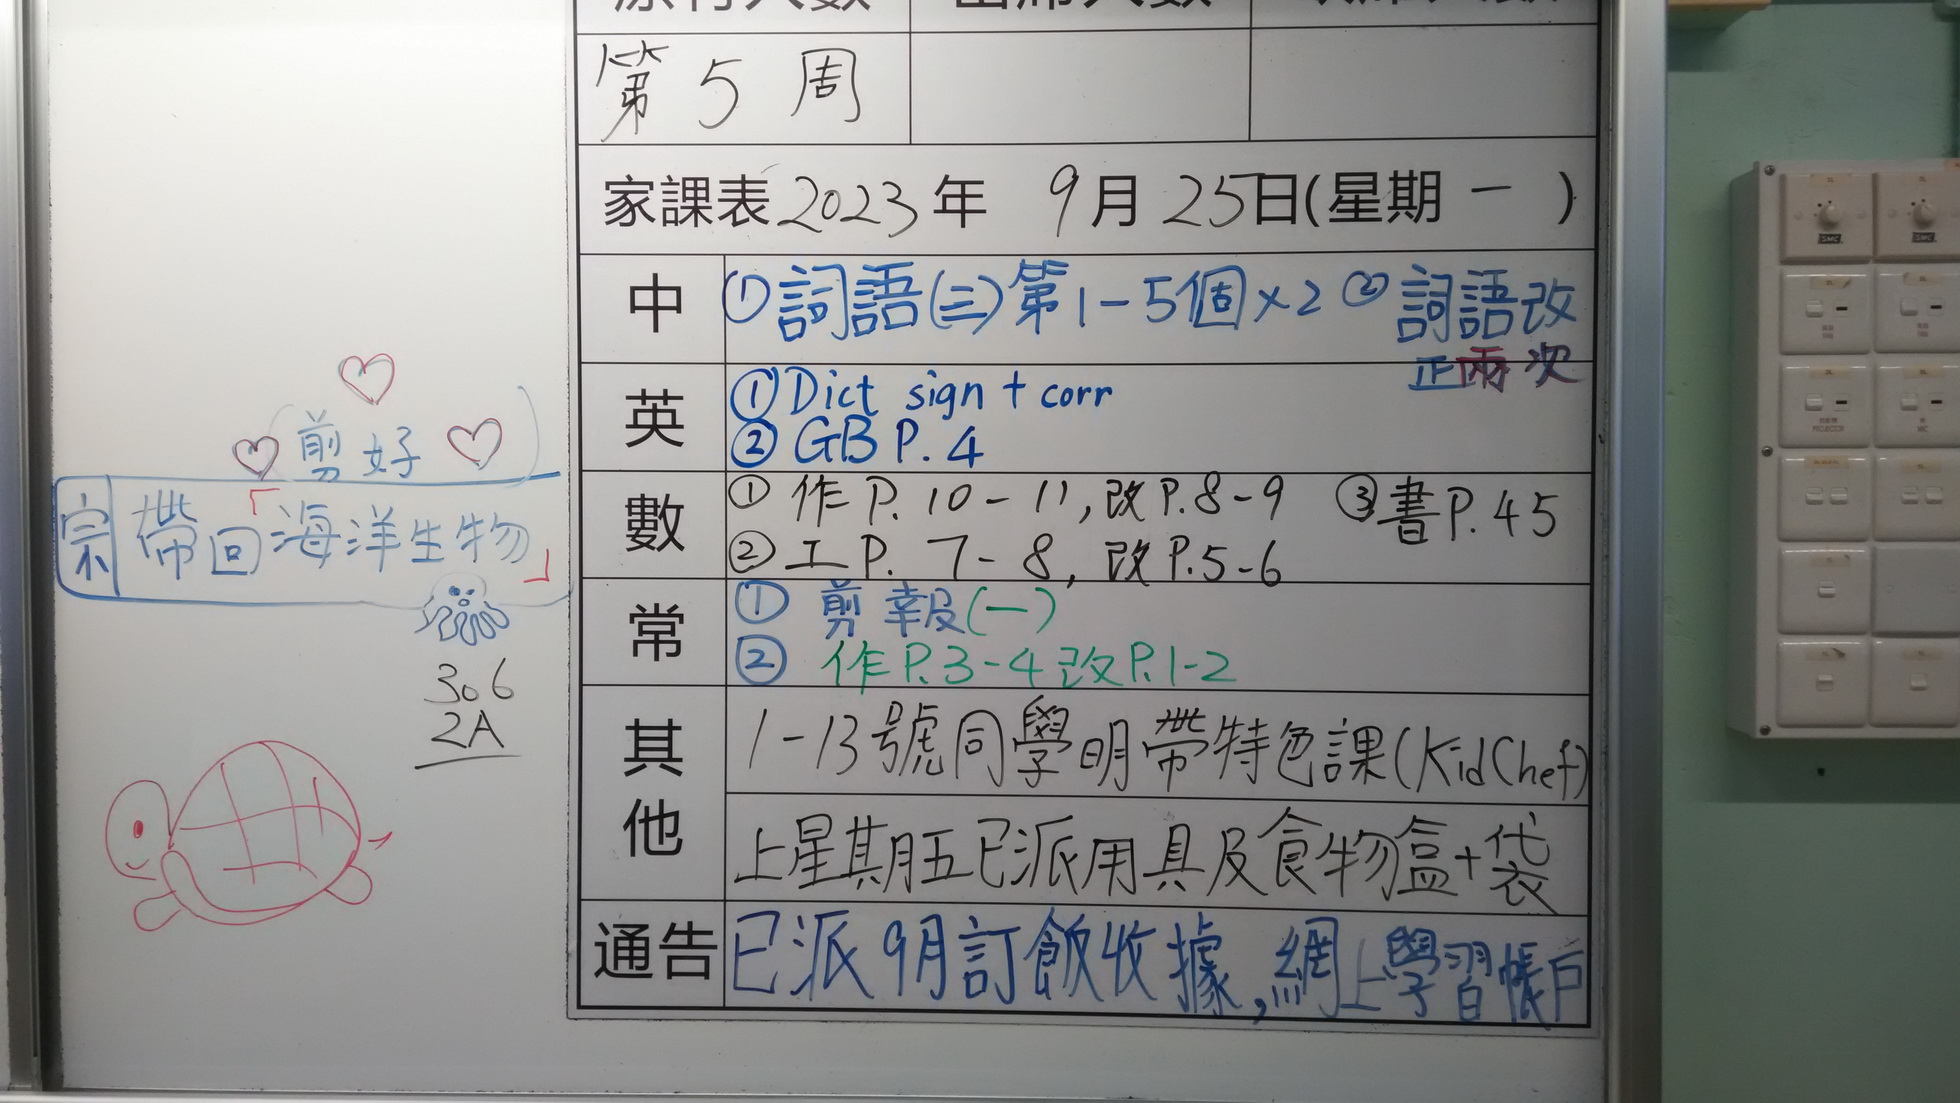 第5周
家課表2023年 9月25日(星期一)
中 ①詞語(三)第1-5個×2 ②詞語改
正兩次
英 ①Dict sign + corr
②GB P.4
數 ①作P.10-11,改P.8-9 ③書P.45
②工P.7-8,改P.5-6
常 ①剪報(一)
②作P.3-4改P.1-2
其他 1-13號同學明帶特色課(KidChef)
上星期五已派用具及食物盒+袋
通告 已派9月訂飯收據,網上學習帳戶
剪好
宗 帶回「海洋生物」
306
2A